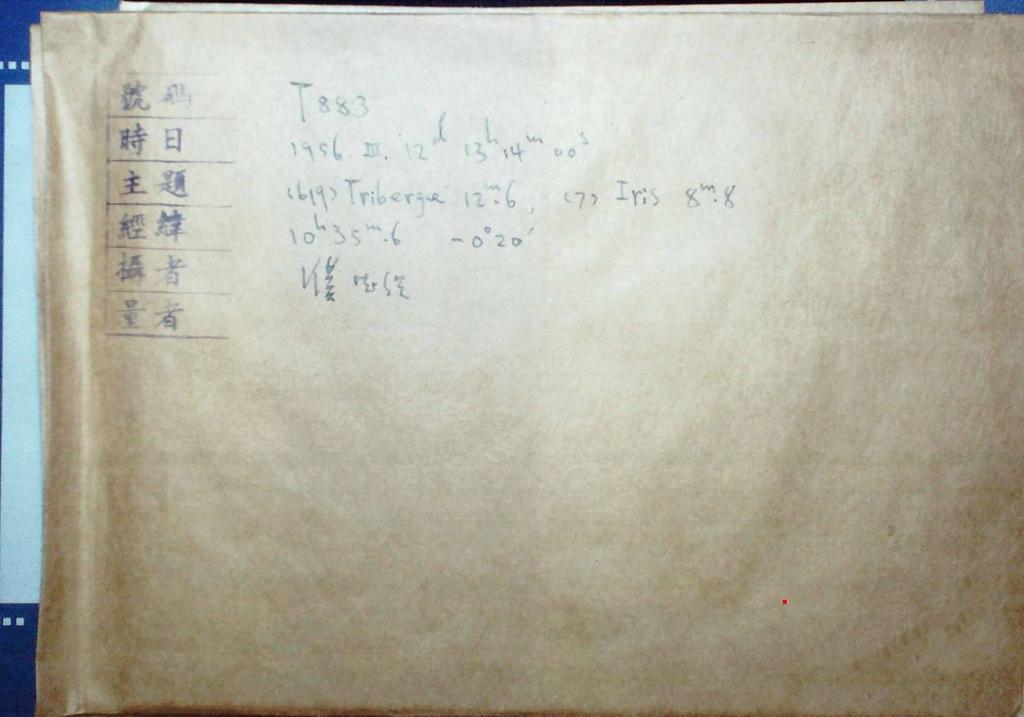 號碼 T883
時日 1956. III. 12ᵈ 13ʰ14ᵐ00ˢ
主題 (619) Triberga 12ᵐ.6, (7) Iris 8ᵐ.8
經緯 10ʰ35ᵐ.6 -0°20′
攝者
量者